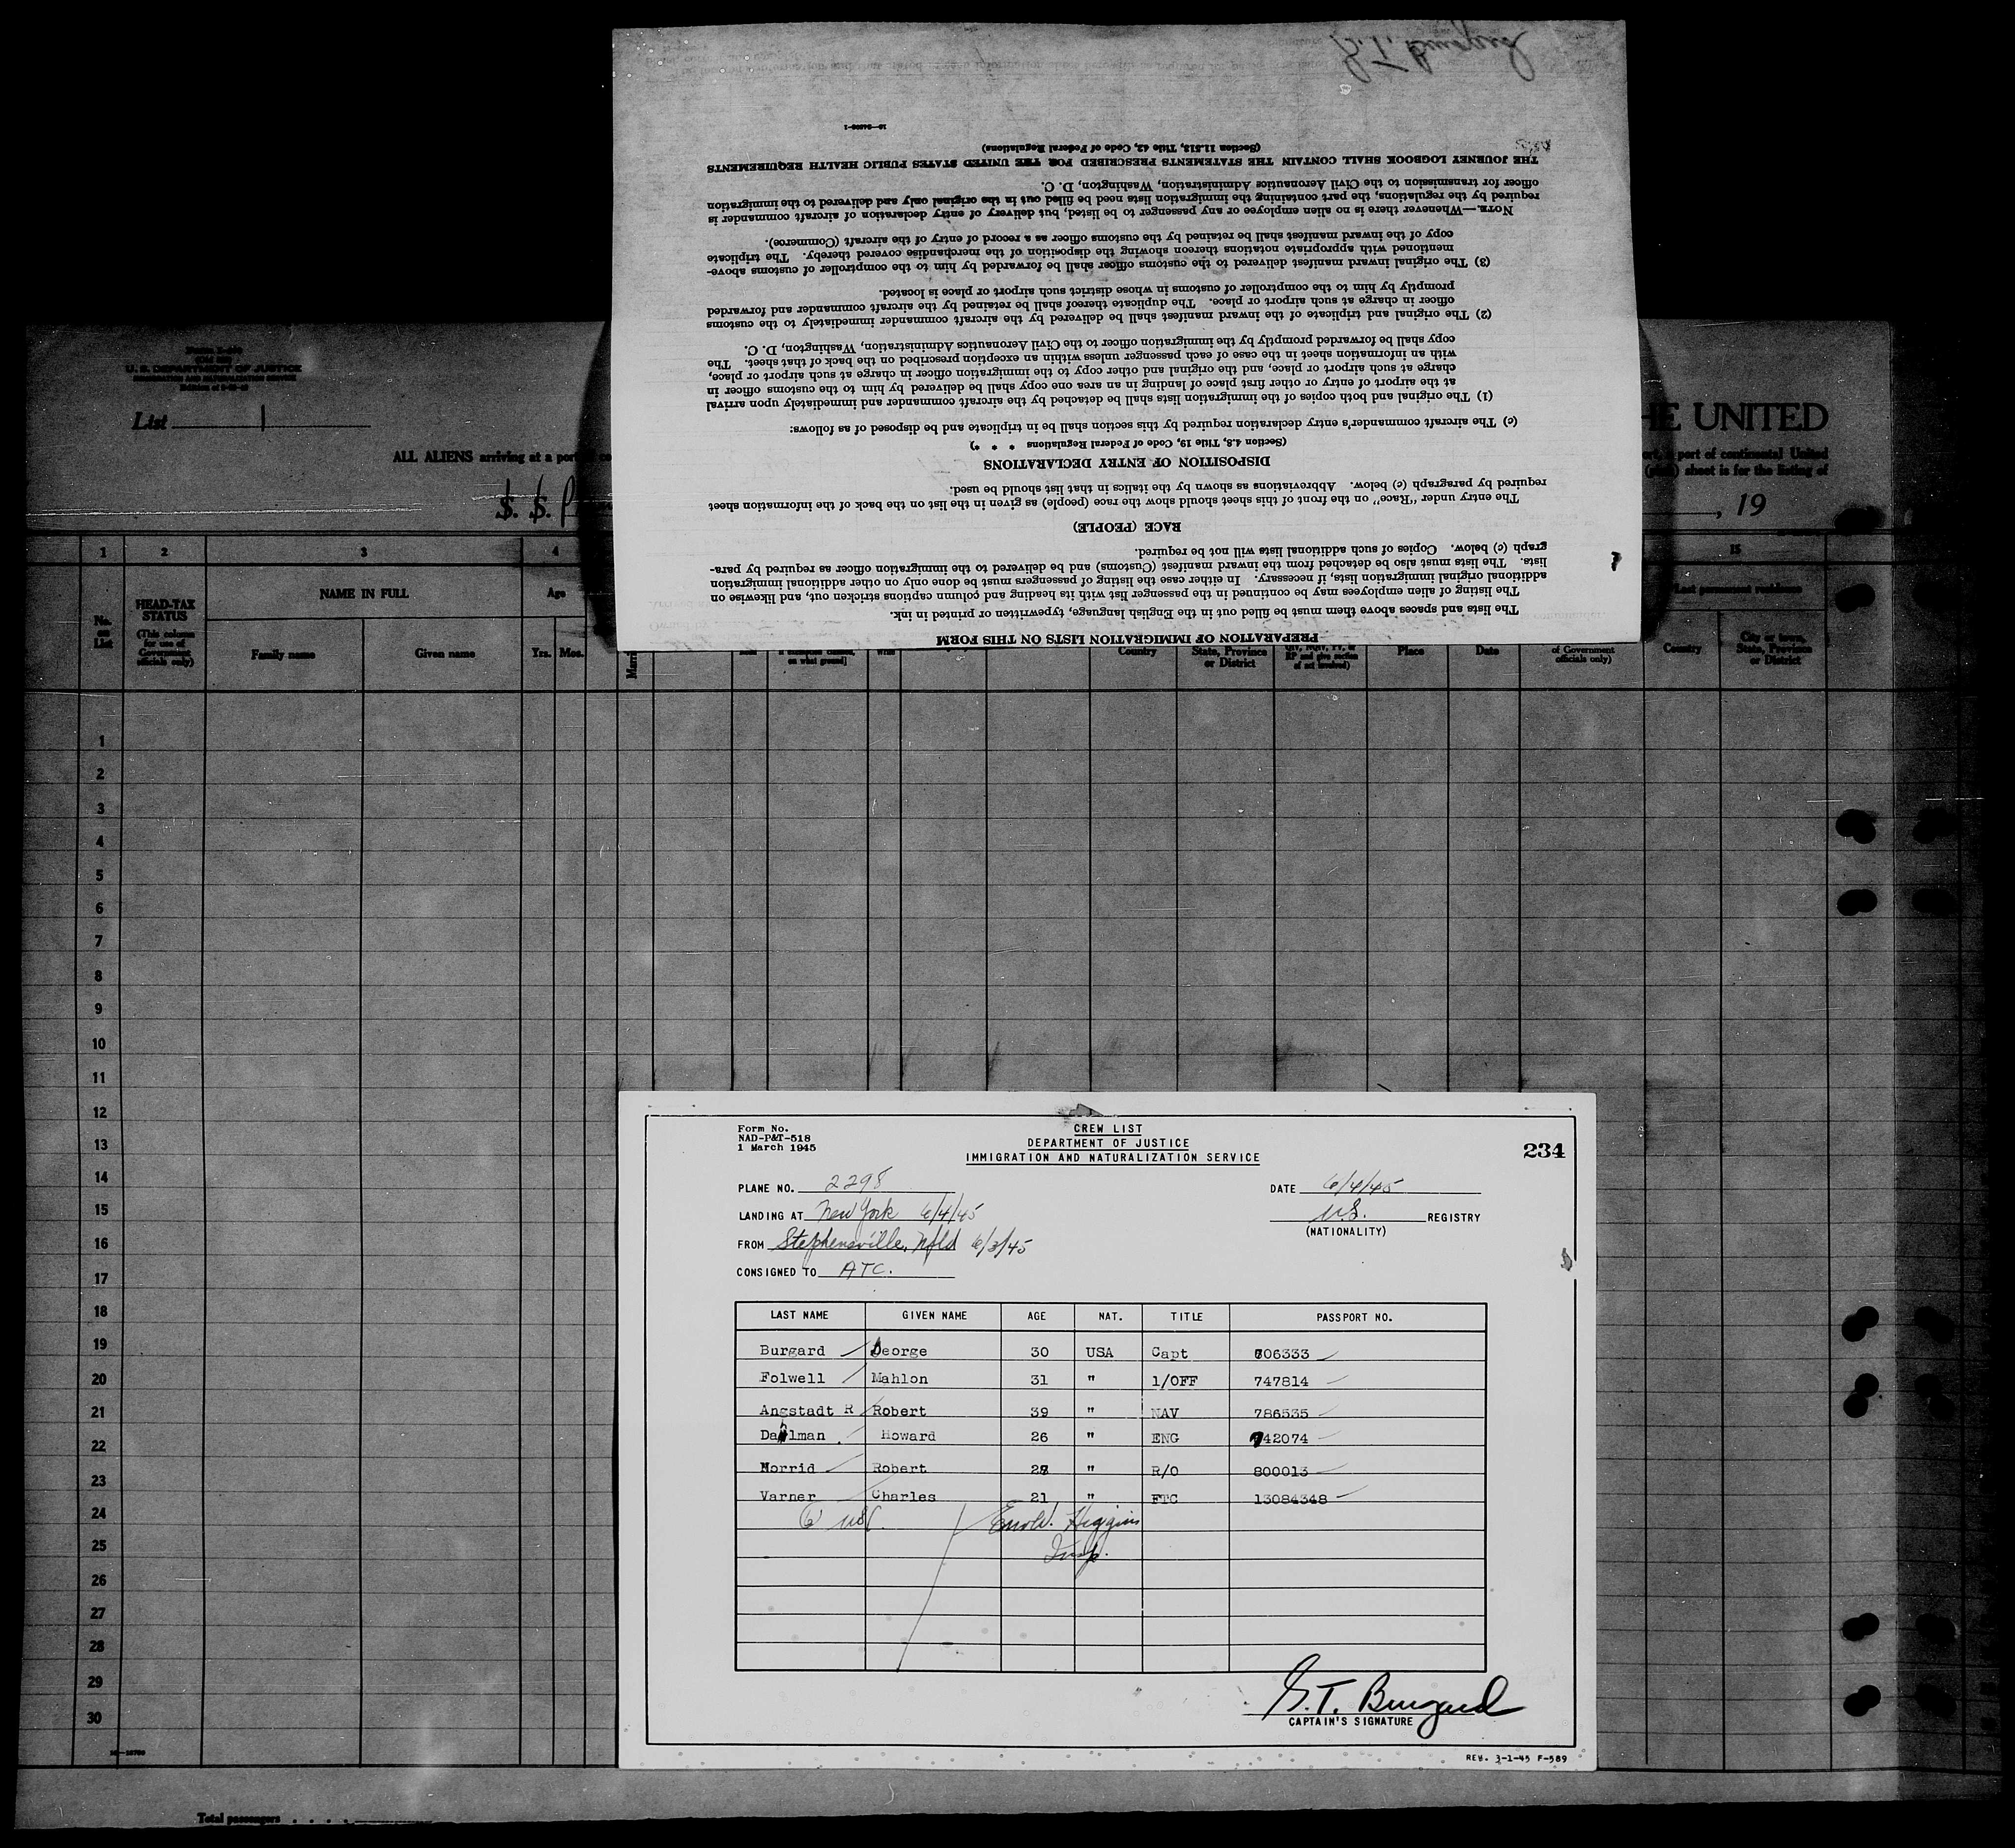 G. T. Burgard
16—24806-1
PREPARATION OF IMMIGRATION LISTS ON THIS FORM
The lists and spaces above them must be filled out in the English language, typewritten or printed in ink.
The listing of alien employees may be continued in the passenger list with its heading and column captions stricken out, and likewise on
additional original immigration lists, if necessary. In either case the listing of passengers must be done only on other additional immigration
lists. The lists must also be detached from the inward manifest (Customs) and be delivered to the immigration officer as required by para-
graph (c) below. Copies of such additional lists will not be required.
RACE (PEOPLE)
The entry under "Race" on the front of this sheet should show the race (people) as given in the list on the back of the information sheet
required by paragraph (c) below. Abbreviations as shown by the italics in that list should be used.
DISPOSITION OF ENTRY DECLARATIONS
(Section 4.8, Title 19, Code of Federal Regulations * * *)
(c) The aircraft commander's entry declaration required by this section shall be in triplicate and be disposed of as follows:
(1) The original and both copies of the immigration lists shall be detached by the aircraft commander and immediately upon arrival
at the airport of entry or other first place of landing in an area one copy shall be delivered by him to the customs officer in
charge at such airport or place, and the original and other copy to the immigration officer in charge at such airport or place,
with an information sheet in the case of each passenger unless within an exception prescribed on the back of that sheet. The
copy shall be forwarded promptly by the immigration officer to the Civil Aeronautics Administration, Washington, D. C.
(2) The original and triplicate of the inward manifest shall be delivered by the aircraft commander immediately to the customs
officer in charge at such airport or place. The duplicate thereof shall be retained by the aircraft commander and forwarded
promptly by him to the comptroller of customs in whose district such airport or place is located.
(3) The original inward manifest delivered to the customs officer shall be forwarded by him to the comptroller of customs above-
mentioned with appropriate notations thereon showing the disposition of the merchandise covered thereby. The triplicate
copy of the inward manifest shall be retained by the customs officer as a record of entry of the aircraft (Commerce).
NOTE.—Whenever there is no alien employee or any passenger to be listed, but delivery of entry declaration of aircraft commander is
required by the regulations, the part containing the immigration lists need be filled out in the original only and delivered to the immigration
officer for transmission to the Civil Aeronautics Administration, Washington, D. C.
THE JOURNEY LOGBOOK SHALL CONTAIN THE STATEMENTS PRESCRIBED FOR THE UNITED STATES PUBLIC HEALTH REQUIREMENTS
(Section 11.513, Title 42, Code of Federal Regulations)
U. S. DEPARTMENT OF JUSTICE
List 1
HE UNITED
ALL ALIENS arriving at a port
port of continental United
sheet is for the listing of
S. S.
, 19
1 2 3 4 15
No. on List
HEAD-TAX STATUS
(This column for use of Government officials only)
NAME IN FULL
Family name Given name
Age
Yrs. Mos.
on what ground]
Country
State, Province or District
Place Date
of Government officials only)
Last permanent residence
Country
City or town, State, Province or District
1
2
3
4
5
6
7
8
9
10
11
12
13
14
15
16
17
18
19
20
21
22
23
24
25
26
27
28
29
30
Total passengers
Form No.
NAD-P&T-518
1 March 1945
CREW LIST
DEPARTMENT OF JUSTICE
IMMIGRATION AND NATURALIZATION SERVICE
234
PLANE NO. 2298
DATE 6/4/45
LANDING AT New York 6/4/45
U.S. REGISTRY
(NATIONALITY)
FROM Stephensville, Nfld 6/3/45
CONSIGNED TO ATC.
LAST NAME GIVEN NAME AGE NAT. TITLE PASSPORT NO.
Burgard George 30 USA Capt 706333
Folwell Mahlon 31 " 1/OFF 747814
Angstadt R Robert 39 " NAV 786535
Dahlman Howard 26 " ENG 742074
Morrid Robert 28 " R/O 800013
Varner Charles 21 " FTC 13084348
6 USC
Higgins
Insp.
G. T. Burgard
CAPTAIN'S SIGNATURE
REV. 3-1-45 F-589